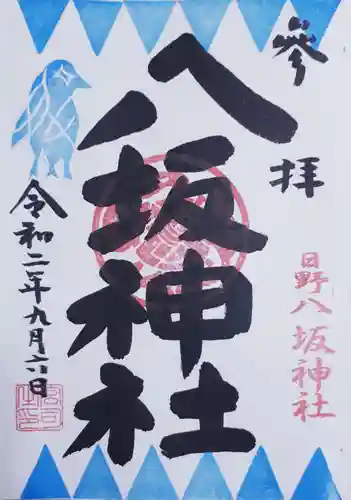 參拝
八坂神社
日野八坂神社
令和二年九月六日